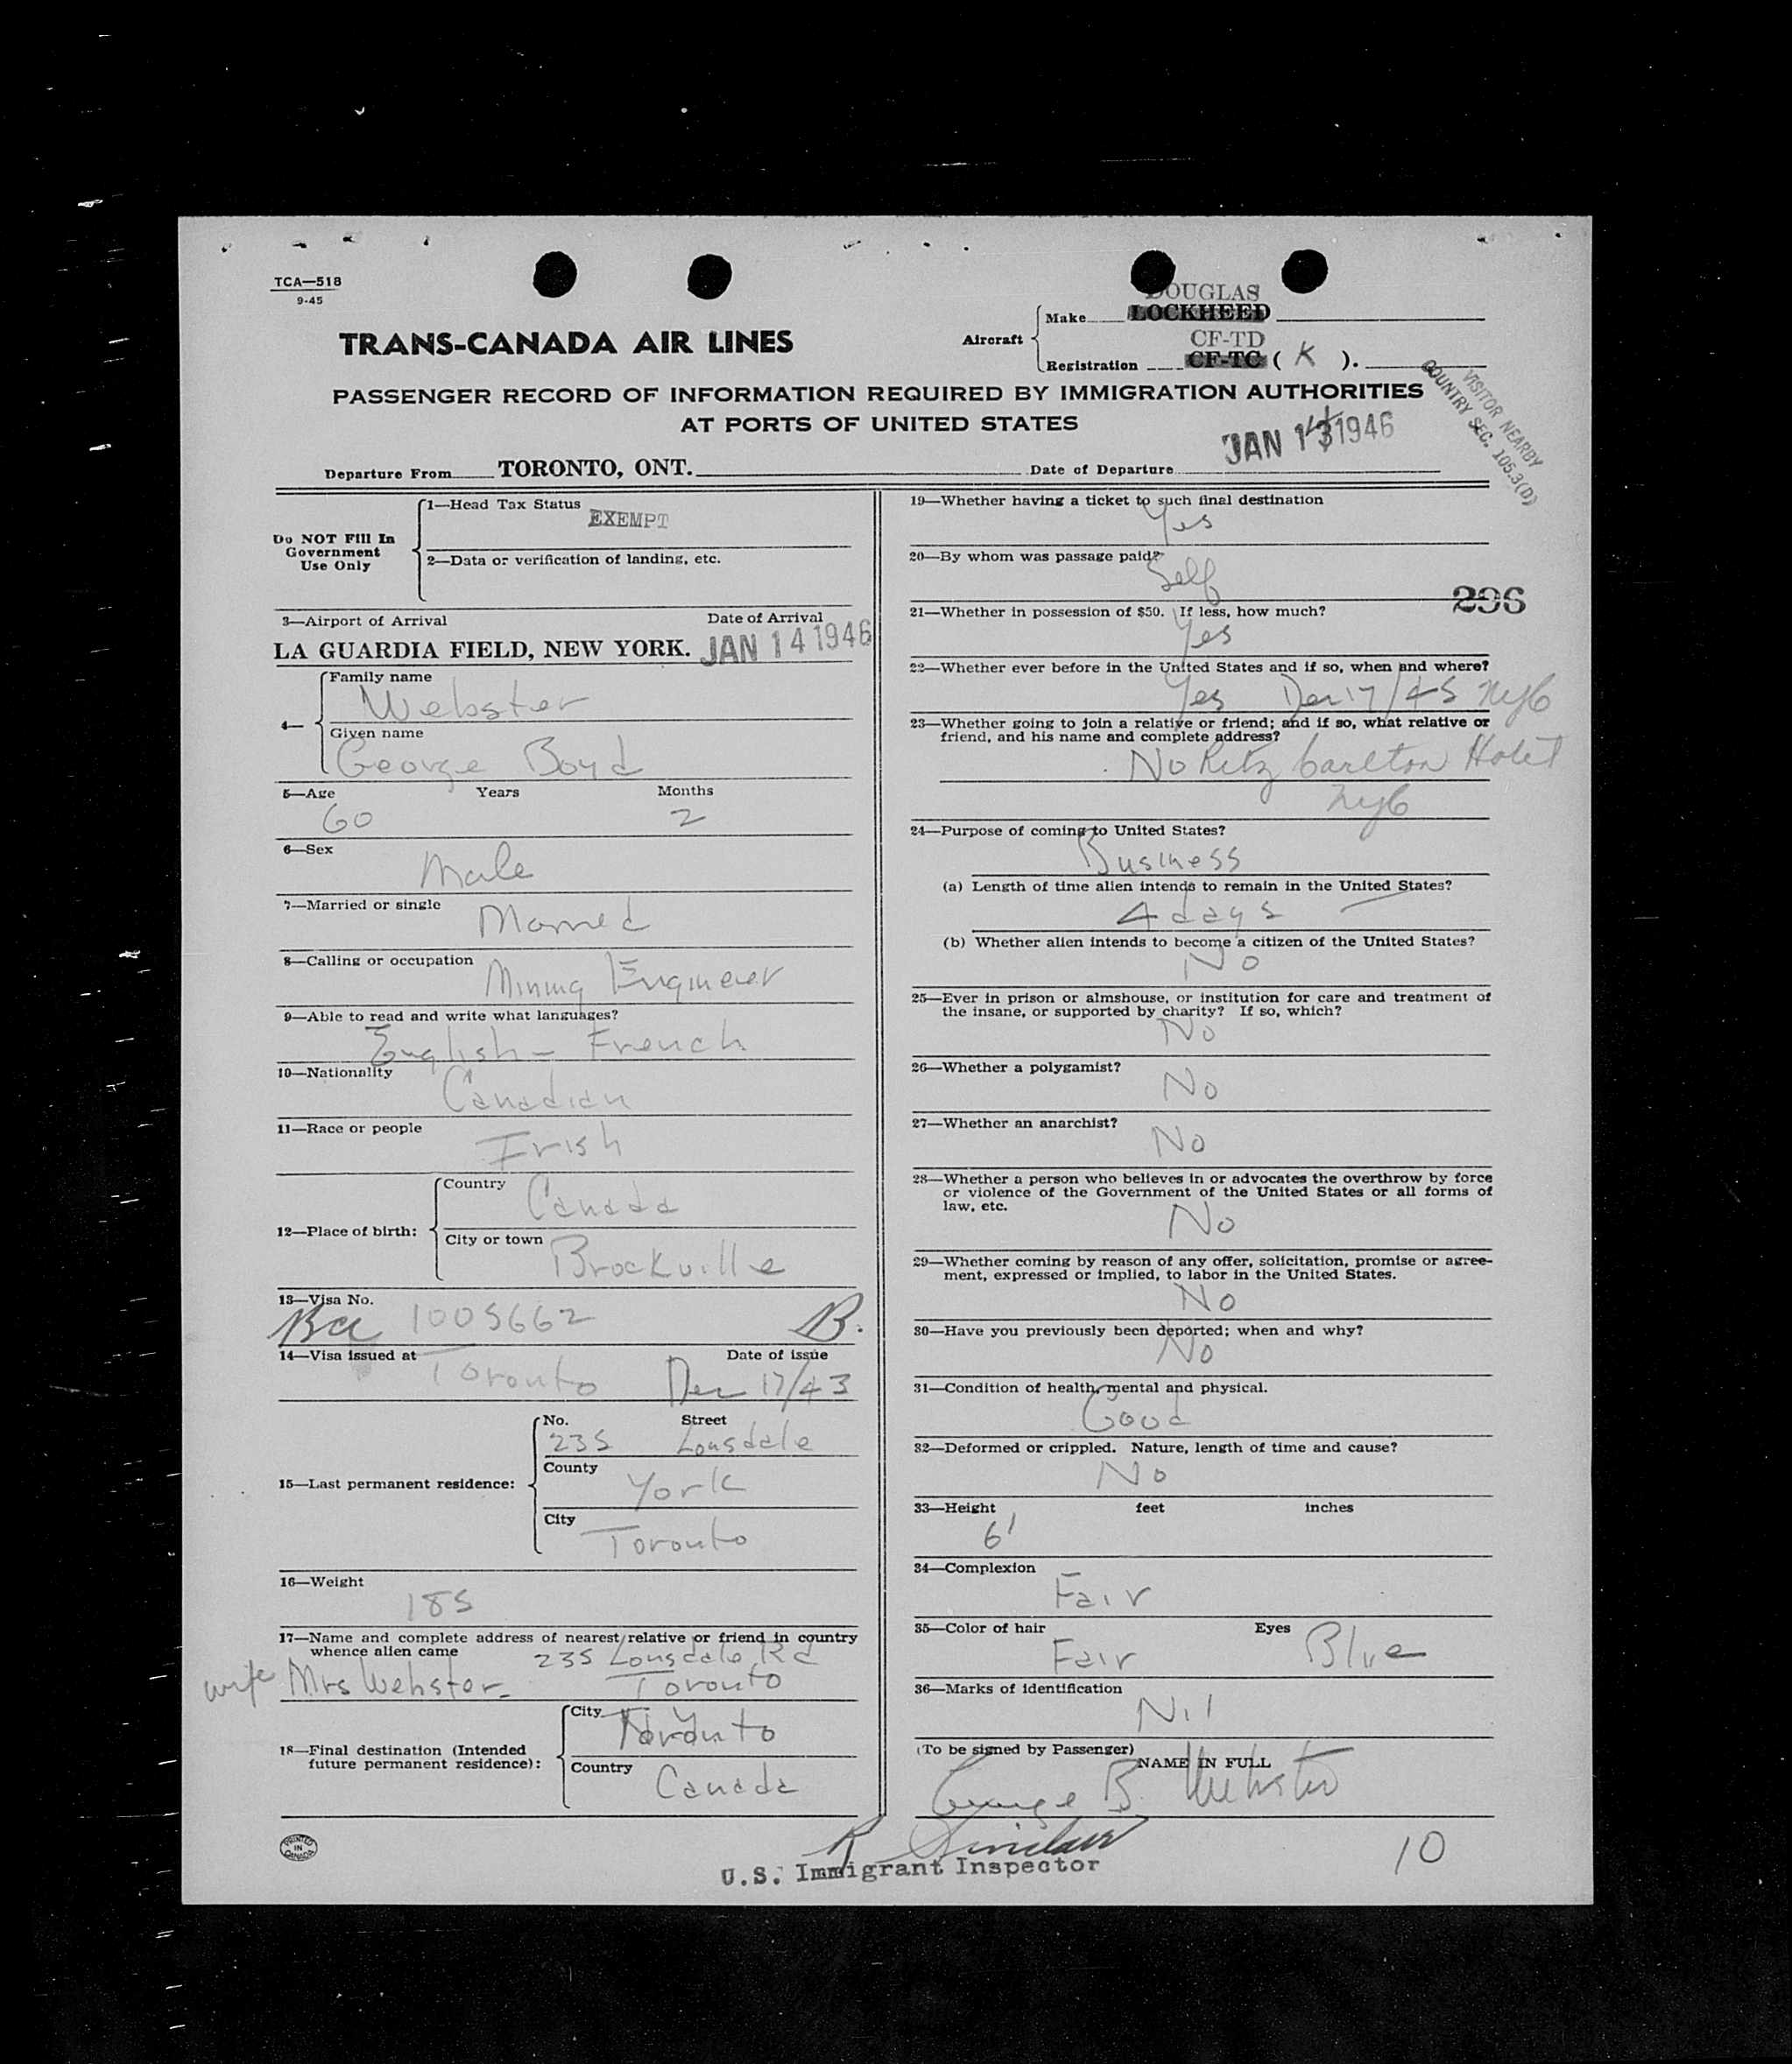 TCA—518
9-45
DOUGLAS
Make LOCKHEED
Aircraft
CF-TD
Registration CF-TC ( K ).
TRANS-CANADA AIR LINES
PASSENGER RECORD OF INFORMATION REQUIRED BY IMMIGRATION AUTHORITIES
AT PORTS OF UNITED STATES
VISITOR NEARBY
COUNTRY SEC. 105.3(D)
Departure From TORONTO, ONT. Date of Departure JAN 14 1946
Do NOT Fill In
Government
Use Only
1—Head Tax Status
EXEMPT
2—Data or verification of landing, etc.
3—Airport of Arrival Date of Arrival
LA GUARDIA FIELD, NEW YORK. JAN 14 1946
4—
Family name
Webster
Given name
George Boyd
5—Age Years Months
60 2
6—Sex
Male
7—Married or single
Married
8—Calling or occupation
Mining Engineer
9—Able to read and write what languages?
English - French
10—Nationality
Canadian
11—Race or people
Irish
12—Place of birth:
Country
Canada
City or town
Brockville
13—Visa No.
1005662 B.
14—Visa issued at Date of issue
Toronto Dec 17/43
15—Last permanent residence:
No. Street
235 Lonsdale
County
York
City
Toronto
16—Weight
185
17—Name and complete address of nearest relative or friend in country
whence alien came
235 Lonsdale Rd
wife Mrs Webster - Toronto
18—Final destination (Intended
future permanent residence):
City
Toronto
Country
Canada
PRINTED
IN
CANADA
19—Whether having a ticket to such final destination
Yes
20—By whom was passage paid?
Self
296
21—Whether in possession of $50. If less, how much?
Yes
22—Whether ever before in the United States and if so, when and where?
Yes Dec 17/45 NYC
23—Whether going to join a relative or friend; and if so, what relative or
friend, and his name and complete address?
No Ritz Carlton Hotel
NYC
24—Purpose of coming to United States?
Business
(a) Length of time alien intends to remain in the United States?
4 days
(b) Whether alien intends to become a citizen of the United States?
No
25—Ever in prison or almshouse, or institution for care and treatment of
the insane, or supported by charity? If so, which?
No
26—Whether a polygamist?
No
27—Whether an anarchist?
No
28—Whether a person who believes in or advocates the overthrow by force
or violence of the Government of the United States or all forms of
law, etc.
No
29—Whether coming by reason of any offer, solicitation, promise or agree-
ment, expressed or implied, to labor in the United States.
No
30—Have you previously been deported; when and why?
No
31—Condition of health, mental and physical.
Good
32—Deformed or crippled. Nature, length of time and cause?
No
33—Height feet inches
6'
34—Complexion
Fair
35—Color of hair Eyes
Fair Blue
36—Marks of identification
Nil
(To be signed by Passenger)
NAME IN FULL
George B. Webster
R Sinclair
U.S. Immigrant Inspector
10